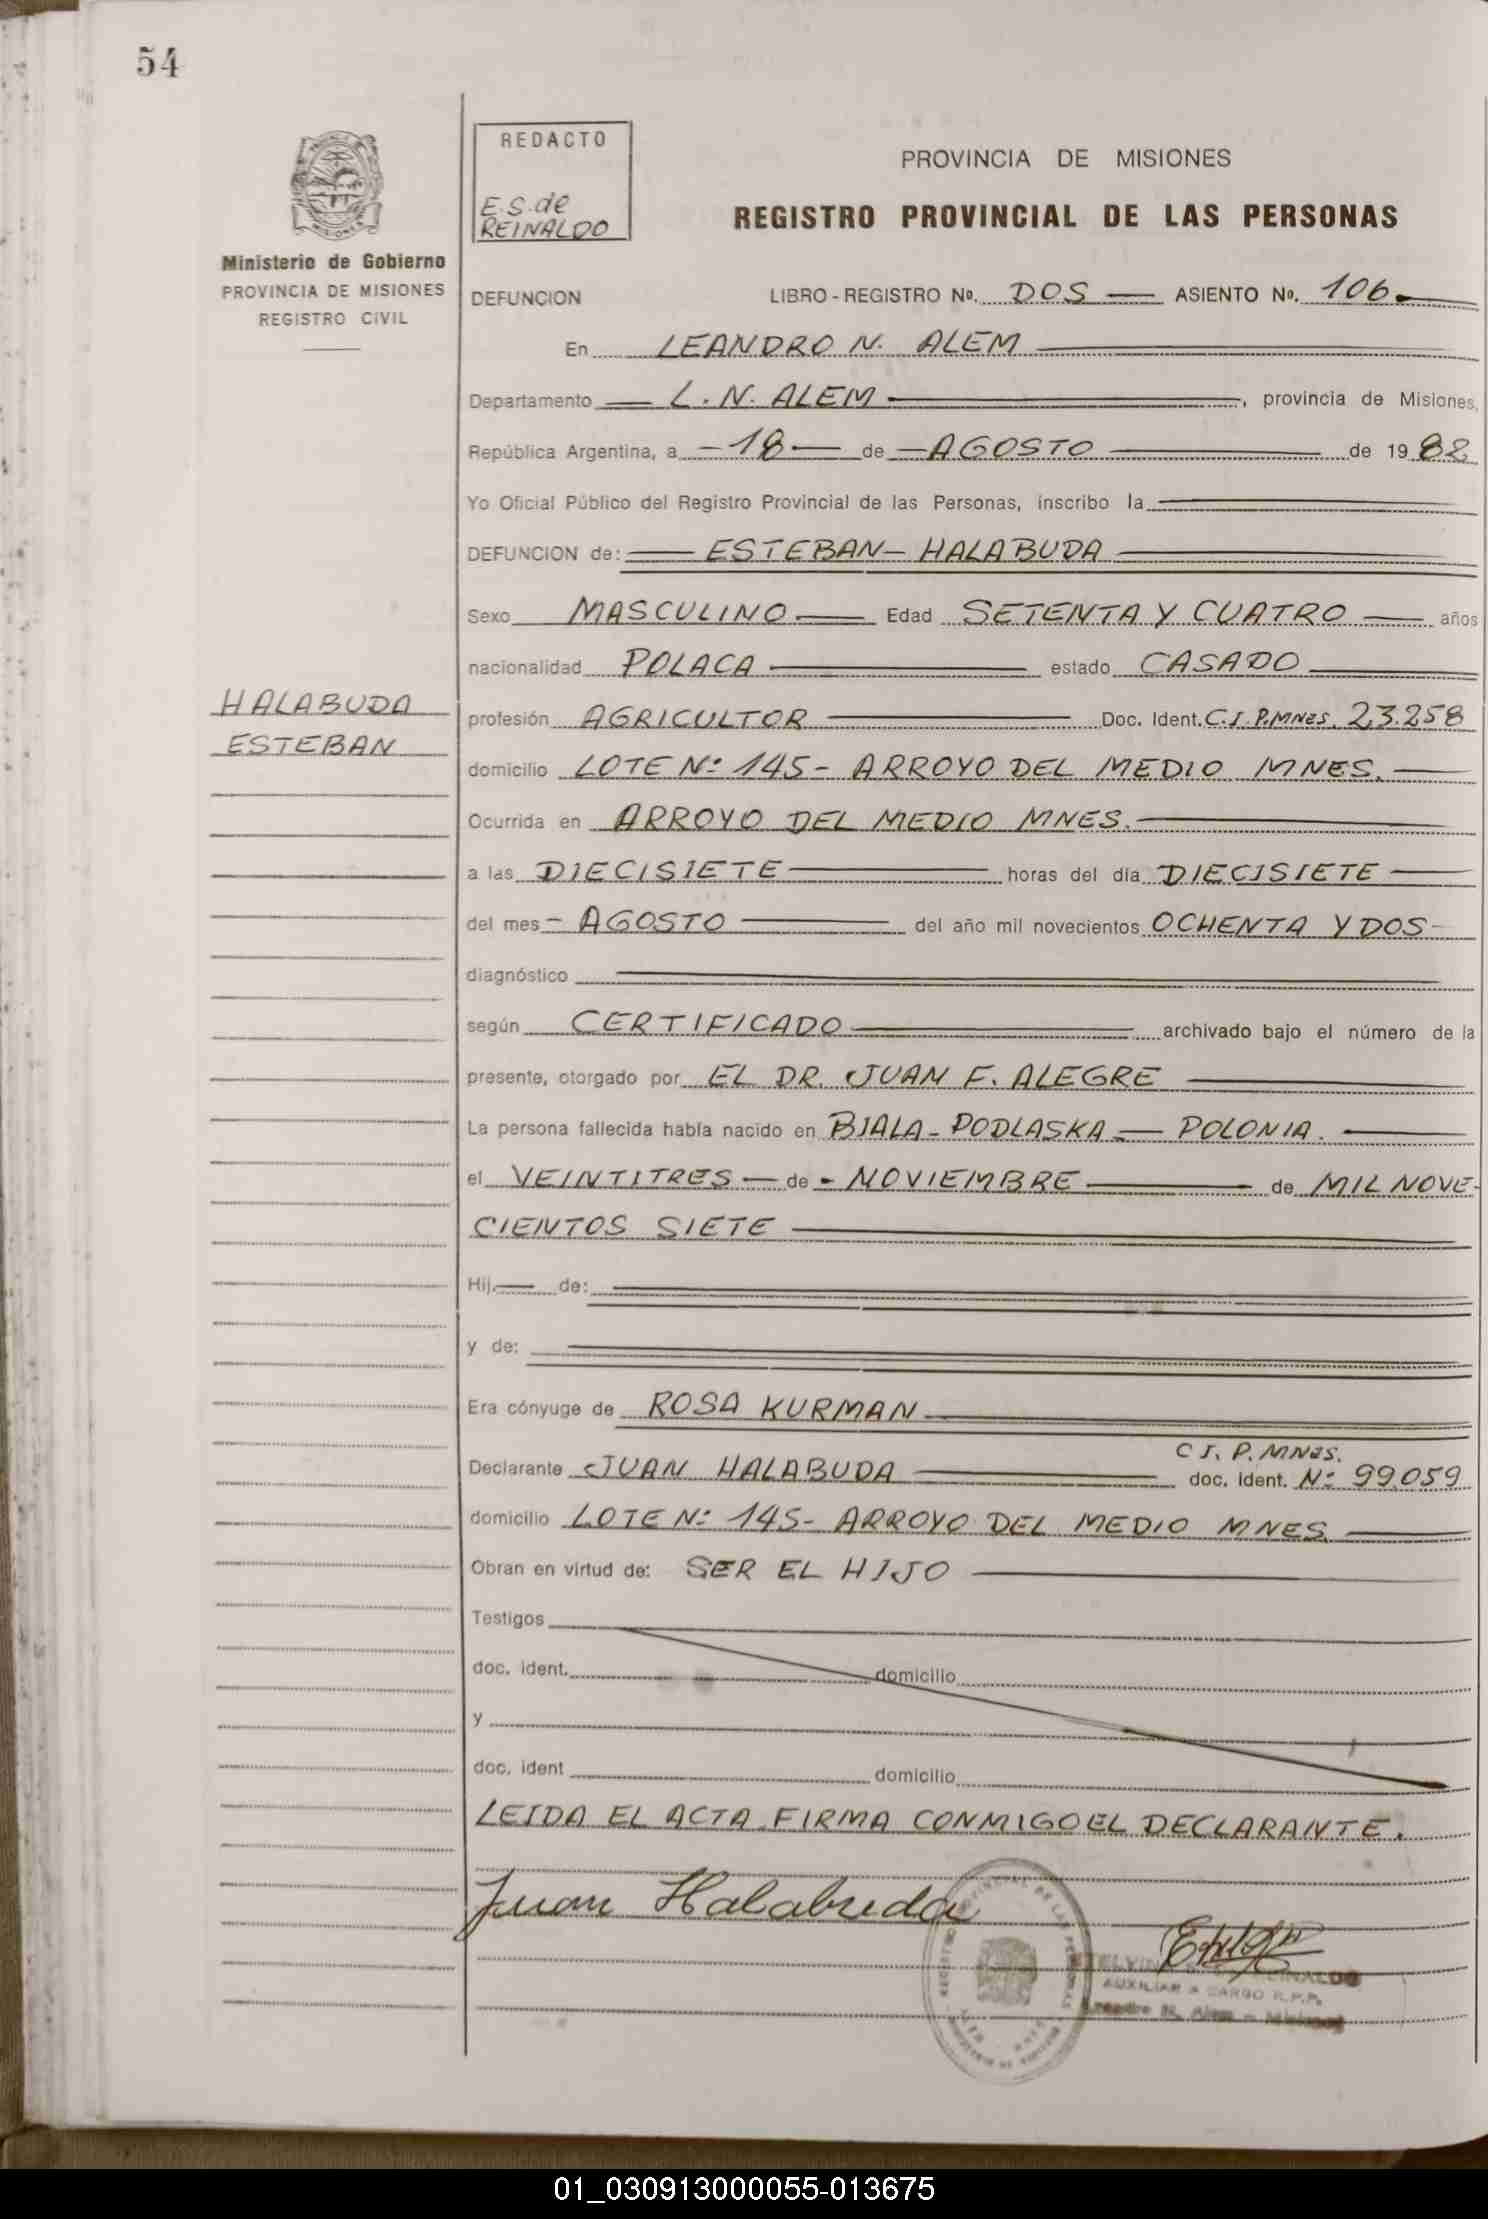 54
REDACTO
E.S. de
REINALDO
PROVINCIA DE MISIONES
REGISTRO PROVINCIAL DE LAS PERSONAS
Ministerio de Gobierno
PROVINCIA DE MISIONES
REGISTRO CIVIL
DEFUNCION LIBRO-REGISTRO Nº. DOS ASIENTO Nº. 106
En LEANDRO N. ALEM
Departamento L. N. ALEM, provincia de Misiones,
República Argentina, a 18 de AGOSTO de 1982
Yo Oficial Público del Registro Provincial de las Personas, inscribo la
DEFUNCION de: ESTEBAN - HALABUDA
Sexo MASCULINO Edad SETENTA Y CUATRO años
nacionalidad POLACA estado CASADO
HALABUDA
ESTEBAN
profesión AGRICULTOR Doc. Ident. C.I.P.MNES. 23.258
domicilio LOTE Nº 145 - ARROYO DEL MEDIO MNES.
Ocurrida en ARROYO DEL MEDIO MNES.
a las DIECISIETE horas del día DIECISIETE
del mes AGOSTO del año mil novecientos OCHENTA Y DOS
diagnóstico
según CERTIFICADO archivado bajo el número de la
presente, otorgado por EL DR. JUAN F. ALEGRE
La persona fallecida había nacido en BIALA - PODLASKA - POLONIA.
el VEINTITRES de NOVIEMBRE de MIL NOVE-
CIENTOS SIETE
Hij de:
y de:
Era cónyuge de ROSA KURMAN
C I. P. MNES.
Declarante JUAN HALABUDA doc. ident. Nº 99.059
domicilio LOTE Nº 145 - ARROYO DEL MEDIO MNES
Obran en virtud de: SER EL HIJO
Testigos
doc. ident. domicilio
y
doc. ident domicilio
LEIDA EL ACTA FIRMA CONMIGO EL DECLARANTE.
Juan Halabuda
REINALDO
AUXILIAR A CARGO R.P.P.
Leandro N. Alem - Misiones
01_030913000055-013675